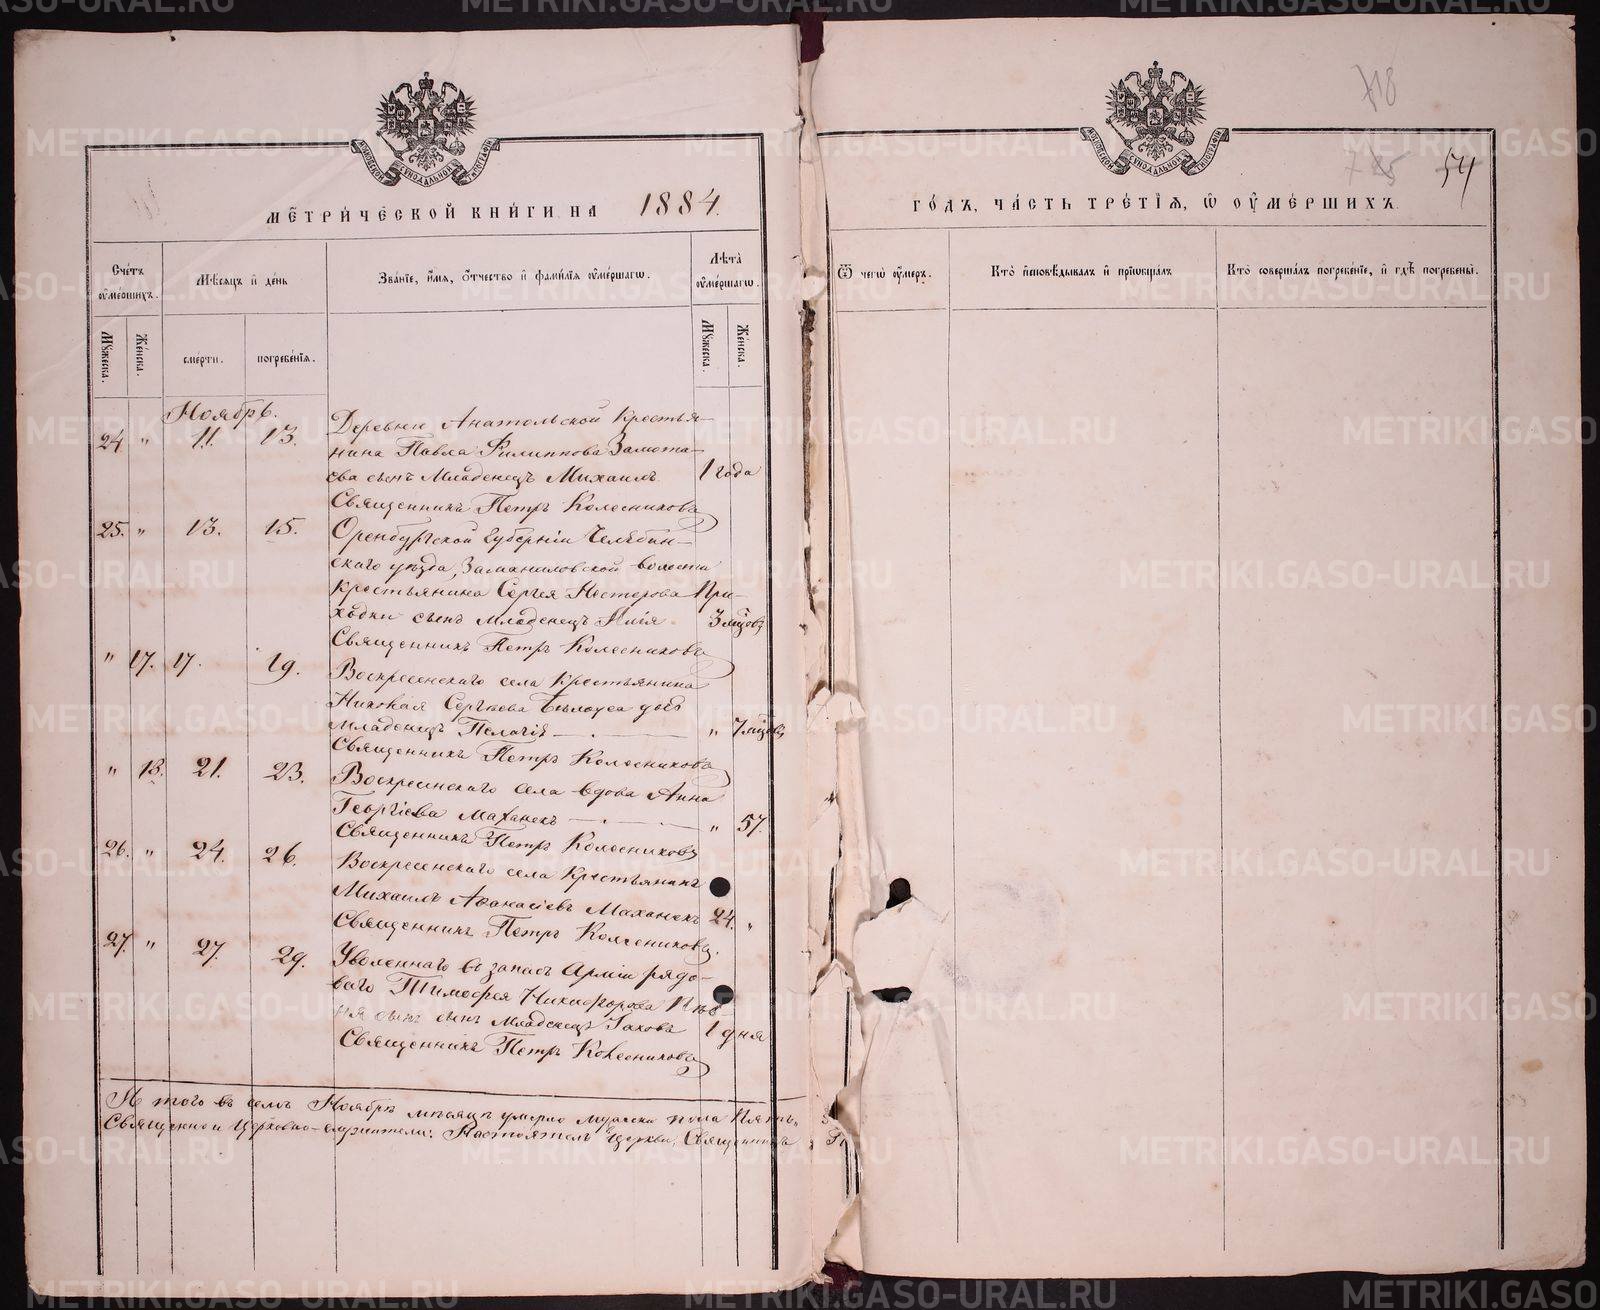 МЕТРИЧЕСКОЙ КНИГИ НА 1884.
Счетъ умершихъ.
Мѣсяцъ и день
Званіе, имя, отчество и фамилія умершагѡ.
Лѣта умершагѡ.
Мужеска.
Женска.
смерти.
погребенія.
Мужеска.
Женска.
Ноябрь.
24 " 11. 13. Деревни Анатольской Крестья-
нина Павла Филиппова Замота-
ева сынъ Младенецъ Михаилъ 1 года
Священникъ Петръ Колесниковъ
25. " 13. 15. Оренбургской Губерніи Челябин-
скаго уѣзда, Заманиловской волости
Крестьянина Сергея Нестерова При-
ходки сынъ младенецъ Илія 3 мцовъ
Священникъ Петръ Колесниковъ
" 17. 17. 19. Воскресенскаго села Крестьянина
Николая Сергѣева Бѣлоуса дочь
младенецъ Пелагія " 7 мцовъ
Священникъ Петръ Колесниковъ
" 18. 21. 23. Воскресенскаго села вдова Анна
Георгіева Маханекъ " 57.
Священникъ Петръ Колесниковъ
26. " 24. 26. Воскресенскаго села Крестьянинъ
Михаилъ Аѳанасіевъ Маханекъ 24. "
Священникъ Петръ Колесниковъ.
27. " 27. 29. Уволеннаго въ запасъ Арміи рядо-
ваго Тимоѳея Никифорова
сынъ младенецъ Іаковъ 1 дня
Священникъ Петръ Колесниковъ
А того въ семъ Ноябрѣ мѣсяцѣ умерло мужеска пола Пять,
Священно и Церковно-служители: Настоятель церкви, Священникъ
718
725
54
ГОДЪ, ЧАСТЬ ТРЕТІЯ, Ѡ УМЕРШИХЪ
Ѿ чегѡ умеръ.
Кто исповѣдывалъ и пріобщалъ
Кто совершалъ погребеніе, и гдѣ погребены.
METRIKI.GASO-URAL.RU